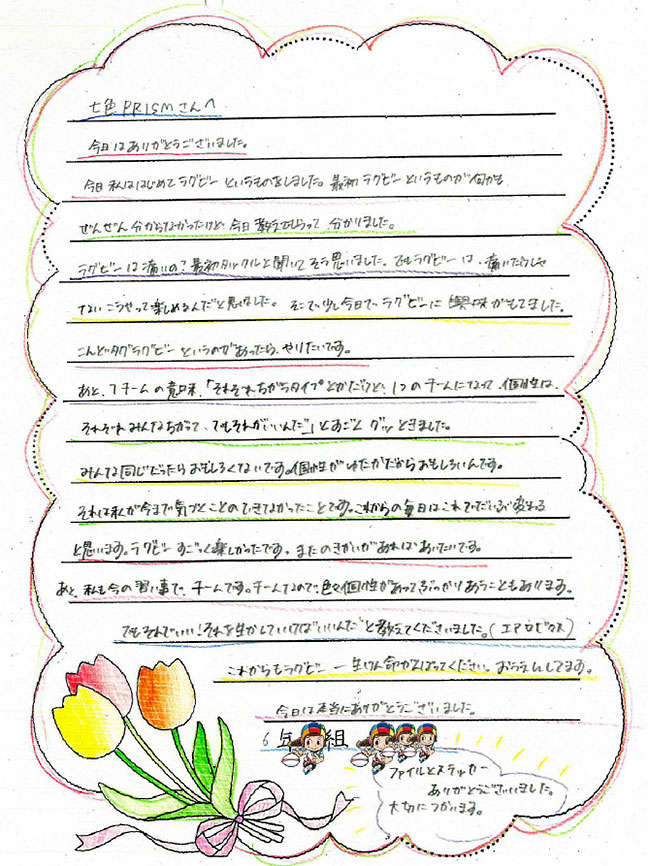 七色PRISMさんへ
今日はありがとうございました。
今日私ははじめてラグビーというものをしました。最初ラグビーというものが何かも
ぜんぜん分からなかったけど、今日教えてもらって、分かりました。
ラグビーは痛いの？最初タックルと聞いてそう思いました。でもラグビーは、痛いだけじゃ
ないこうやって楽しめるんだと思いました。そこで少し今日でラグビーに興味がもてました。
こんどタグラグビーというのがあったら、やりたいです。
あと、チームの意味、「それぞれちがうタイプとかだけど、1つのチームになって、個性は、
それぞれみんなちがって、でもそれがいいんだ」とすごくグッときました。
みんな同じだったらおもしろくないです。個性がゆたかだからおもしろいんです。
それは私が今まで気づくことのできてなかったことです。これからの毎日はこれでだいぶ変わる
と思います。ラグビーすごっく楽しかったです、またのきかいがあればあいたいです。
あと、私も今の習い事で、チームです。チームなので、色々個性があってぶつかりあうこともあります。
でもそれでいい！それを生かしていけばいいんだと教えてくださいました。(エアロビクス)
これからもラグビー一生けん命がんばってください。おうえんしてます。
今日は本当にありがとうございました。
6年 組
ファイルとステッカー
ありがとうございました。
大切につかいます。